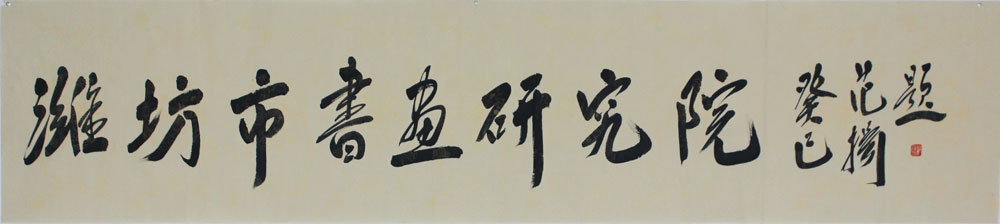 濰坊市書畫研究院
癸巳
范揚
題